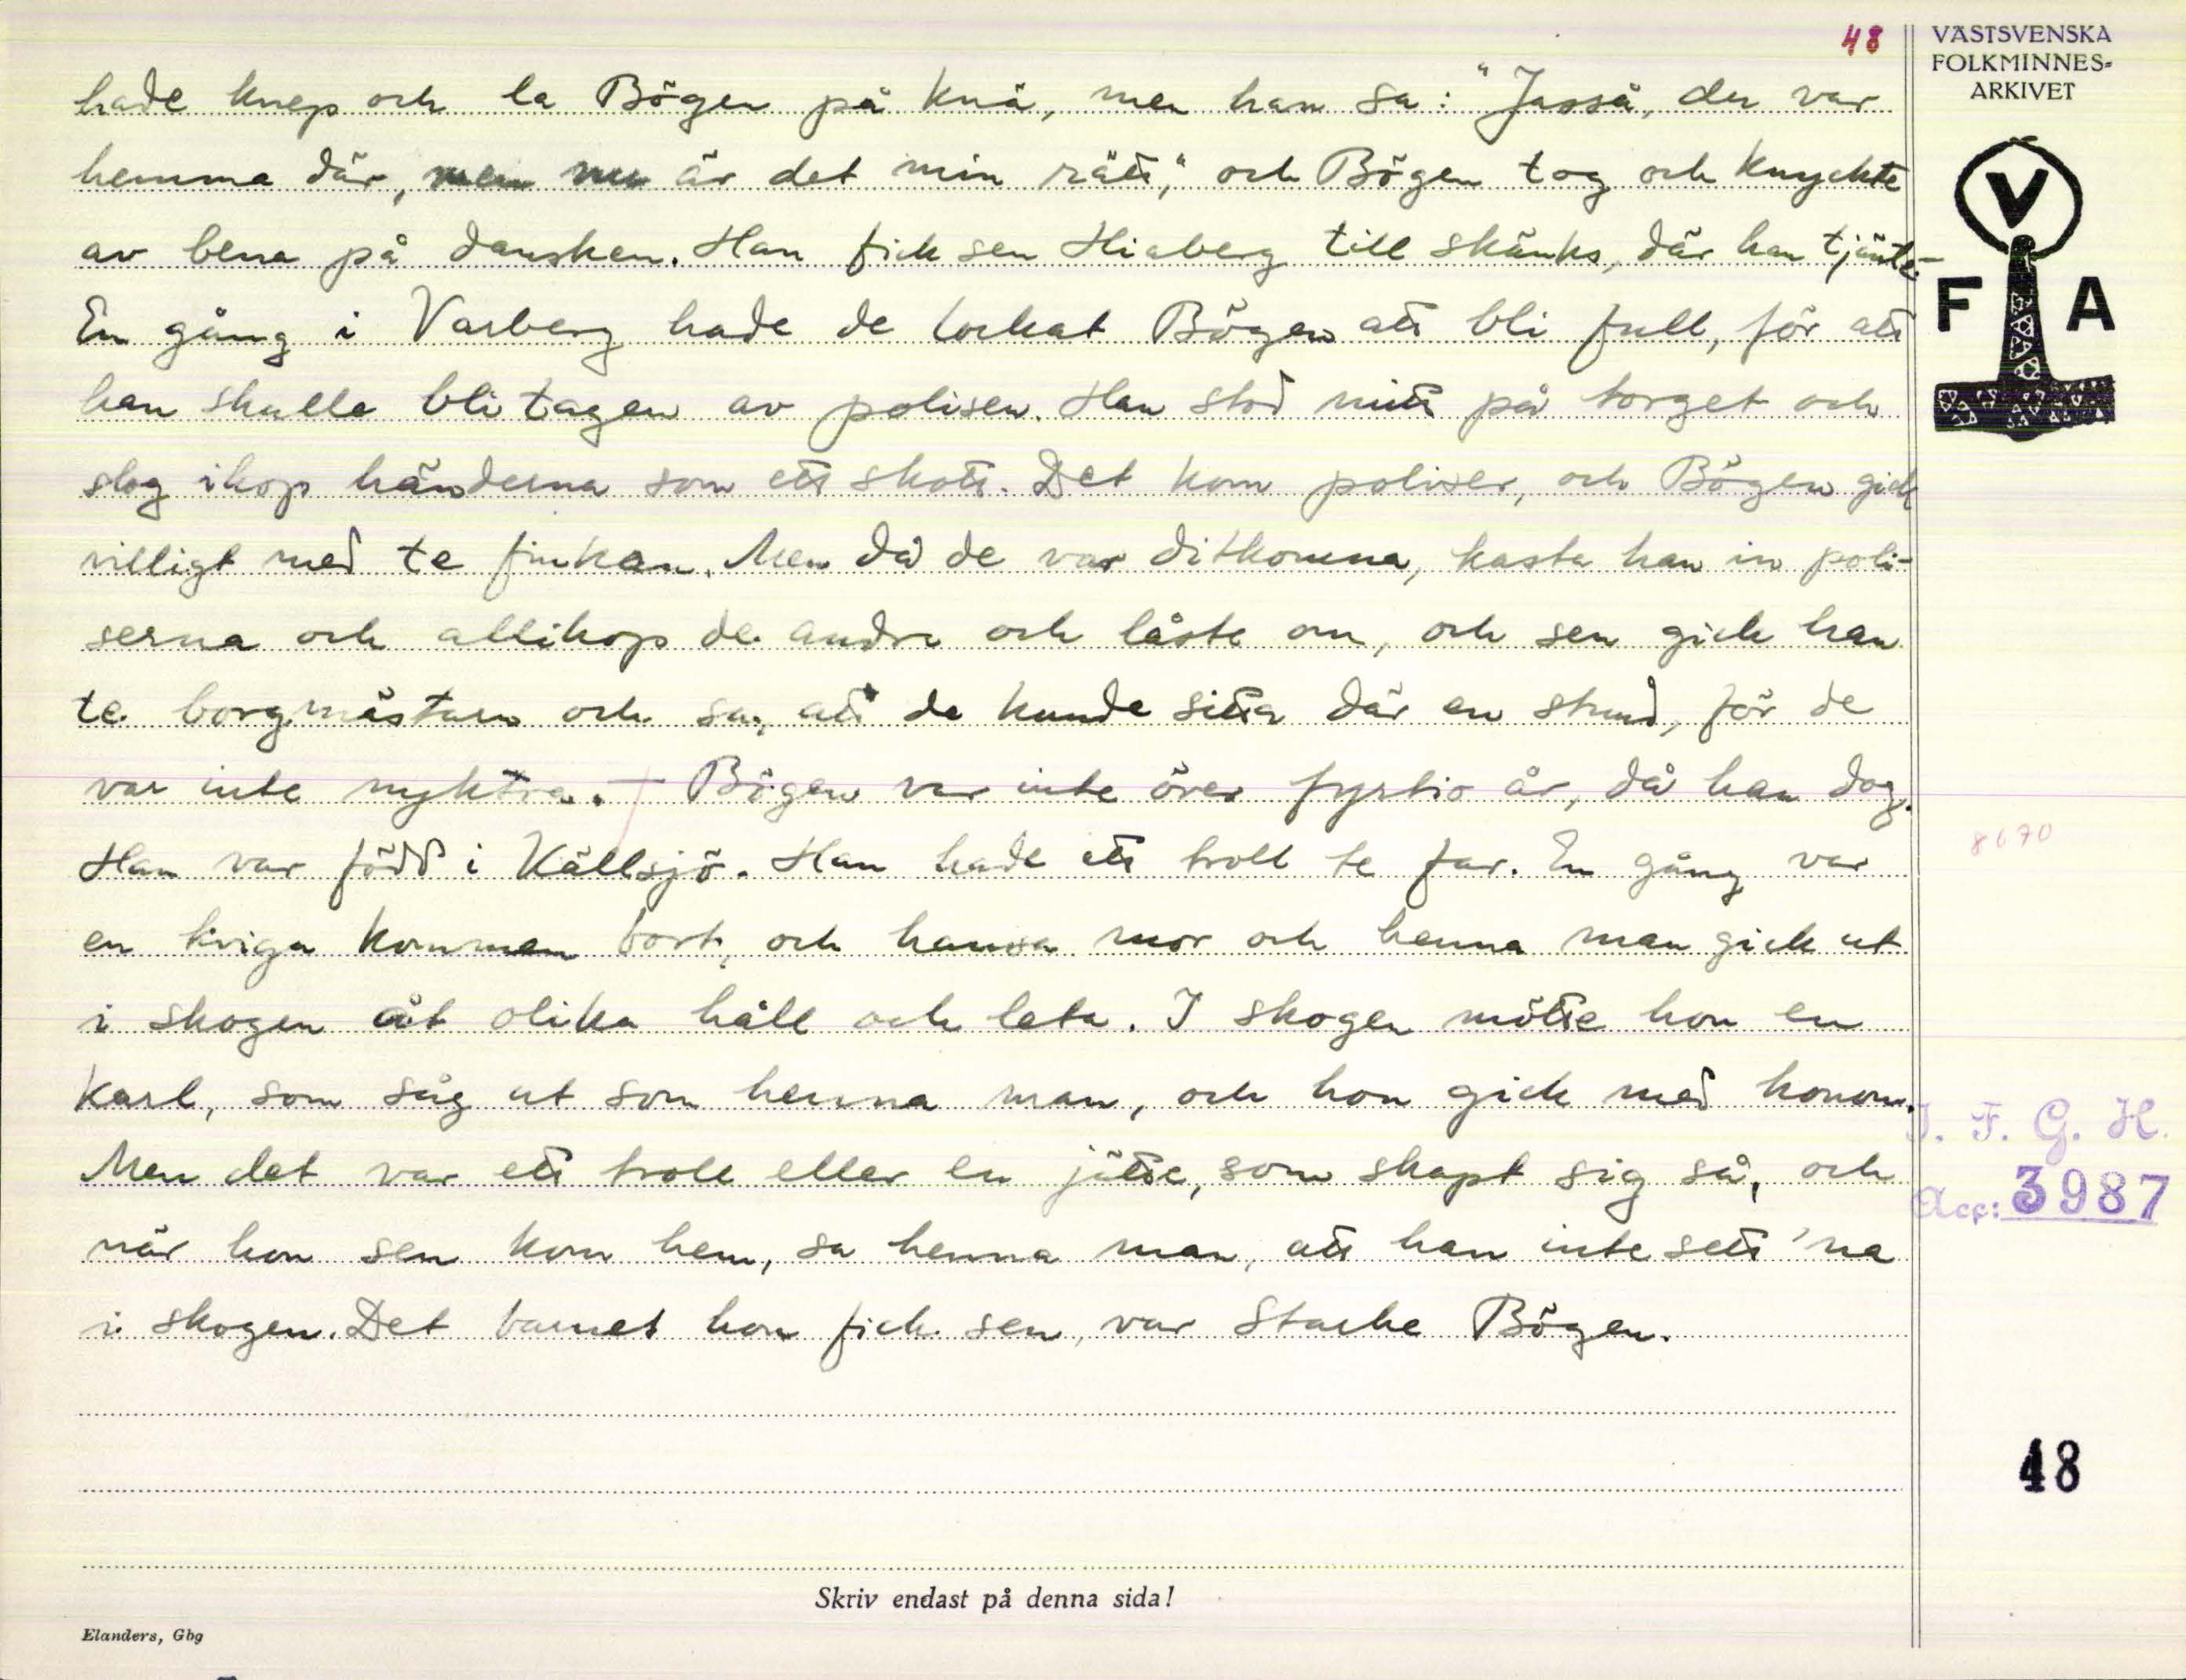 48
VÄSTSVENSKA
FOLKMINNES-
ARKIVET
hade knep och la Bögen på knä, men han sa: "Jasså, du var
hemma där, men nu är det min rätt," och Bögen tog och knyckte
av bena på dansken. Han fick sen Hiaberg till skänks, där han tjänte.-
En gång i Varberg hade de lockat Bögen att bli full, för att
han skulle bli tagen av polisen. Han stod mitt på torget och
slog ihop händerna som ett skott. Det kom poliser, och Bögen gick
villigt med te finkan. Men då de var ditkomna, kasta han in poli-
serna och allihop de andre och låste om, och sen gick han
te borgmästarn och sa, att de kunde sitta där en stund, för de
var inte nyktra. - Bögen var inte över fyrtio år, då han dog.
Han var född i Källsjö. Han hade ett troll te far. En gång var
en kviga kommen bort, och hansa mor och henna man gick ut
i skogen åt olika håll och leta. I skogen mötte hon en
karl, som såg ut som henna man, och hon gick med honom.
Men det var ett troll eller en jätte, som skapt sig så, och
när hon sen kom hem, sa henna man, att han inte sett 'na
i skogen. Det barnet hon fick sen, var Starke Bögen.
V
F A
8670
I. F. G. H.
Acc: 3987
48
Skriv endast på denna sida!
Elanders, Gbg